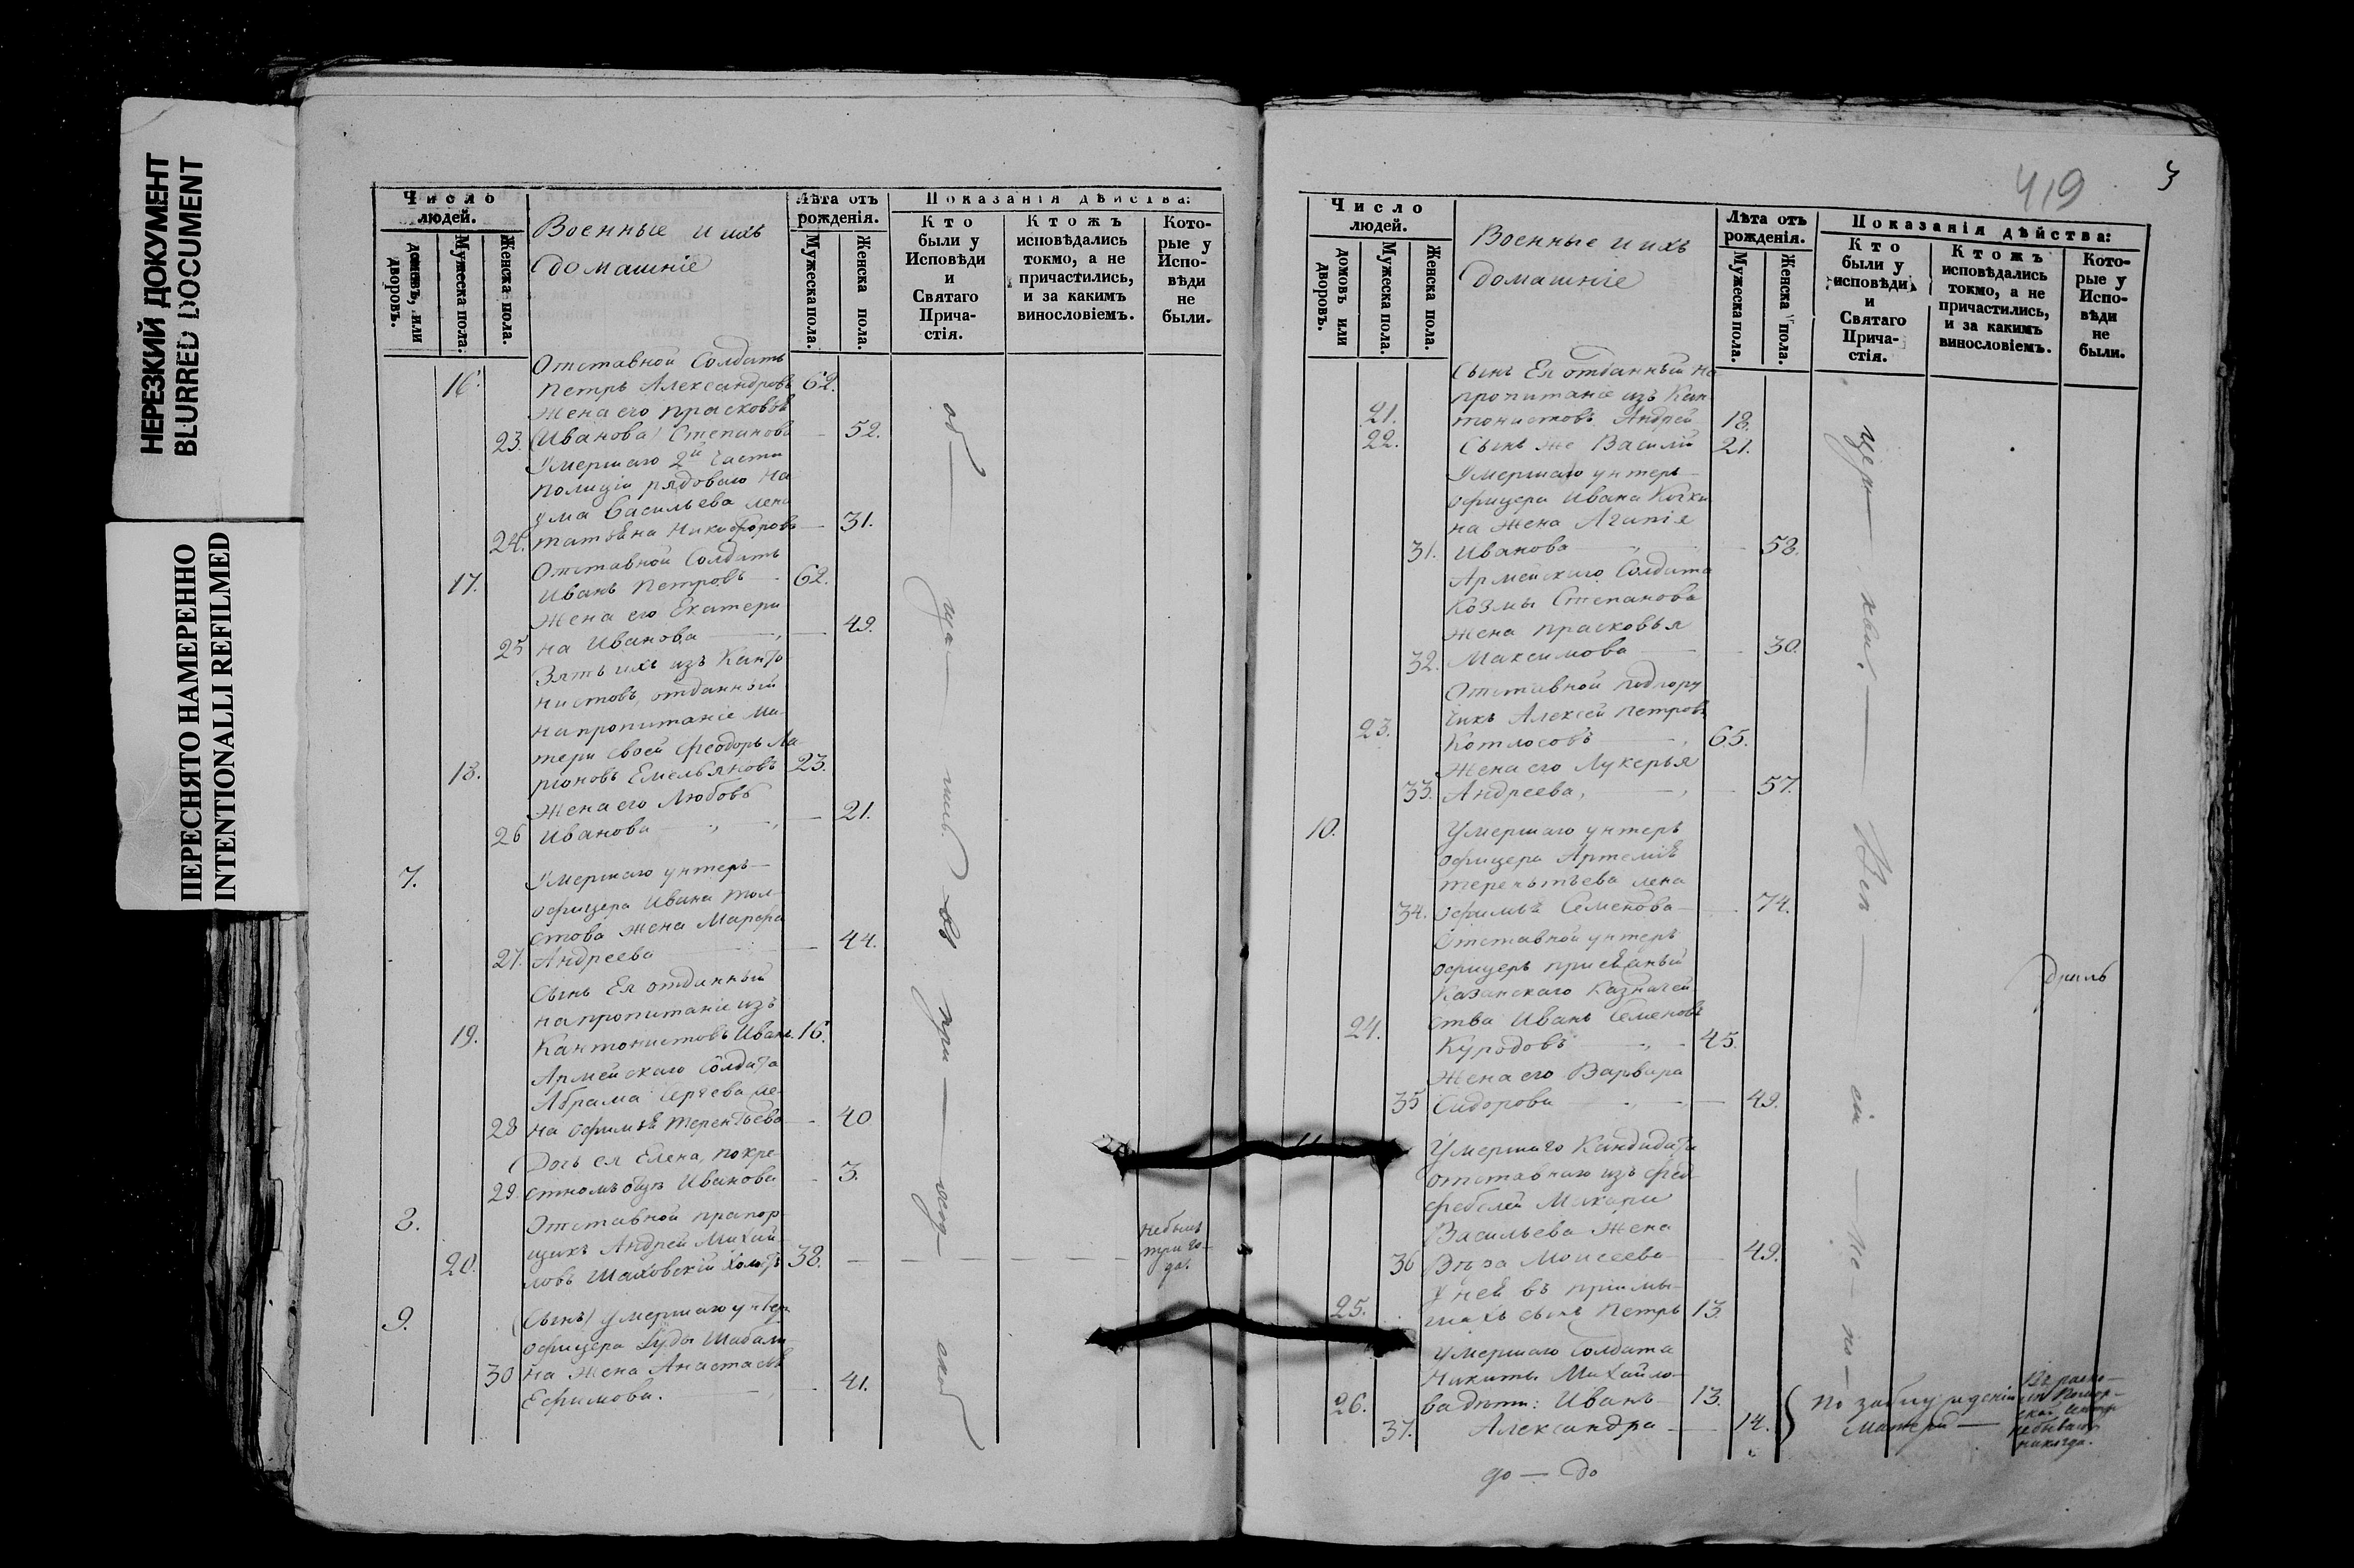 НЕРЕЗКИЙ ДОКУМЕНТ
BLURRED DOCUMENT
ПЕРЕСНЯТО НАМЕРЕННО
INTENTIONALLI REFILMED
Число
людей.
домовъ, или
дворовъ.
Мужеска пола.
Женска пола.
Военные и ихъ
домашніе
Лѣта отъ
рожденія.
Мужеска пола.
Женска пола.
Показанія дѣйства:
Кто
были у
Исповѣди
и
Святаго
Прича-
стія.
Ктожъ
исповѣдались
токмо, а не
причастились,
и за какимъ
винословіемъ.
Кото-
рые у
Испо-
вѣди
не
были.
Отставной Солдатъ
16. Петръ Александровъ 62.
Жена его Прасковья
23. (Иванова) Степанова 52.
Умершаго 2й части
полиціи рядоваго На
ума Васильева жена
24. Татьяна Никифорова 31.
Отставной Солдатъ
17. Иванъ Петровъ 62.
Жена его Екатери
25 на Иванова 49.
Зять ихъ изъКанто
нистовъ, отданный
на пропитаніе Ма-
тери своей Феодоръ Ла
18. ріоновъ Емельяновъ 23.
Жена его Любовь
26 Иванова 21.
7. Умершаго унтеръ
офицера Ивана Тол-
стова жена Марфа
27. Андреева 44.
Сынъ Ея отданный
на пропитаніе изъ
19. Кантонистовъ Иванъ 16.
Армейскаго Солдата
Абрама Сергеева же-
28 на Офимья Терентьева 40
Дочь ея Елена, по кре-
29. стномъ отцѣ Иванова 3.
8. Отставной прапор-
щикъ Андрей Михай-
20. ловъ Шаховскій холостъ 38.
небылъ
три го-
да.
9. (Сынъ) умершаго унтер
офицера Іуды Шабали
30 на Жена Анастасія
Ефимова. 41.
419
3
Число
людей.
домовъ или
дворовъ.
Мужеска пола.
Женска пола.
Военные и ихъ
домашніе
Лѣта отъ
рожденія.
Мужеска пола.
Женска пола.
Показанія дѣйства:
Кто
были у
исповѣди
и
Святаго
Прича-
стія.
Ктожъ
исповѣдались
токмо, а не
причастились,
и за какимъ
винословіемъ.
Кото-
рые у
Испо-
вѣди
не
были.
Сынъ Ея отданный на
пропитаніе изъ Кан
21. тонистовъ Андрей 18.
22. Сынъ же Василій 21.
Умершаго унтеръ
офицера Ивана
на жена Агапія
31. Иванова 58.
Армейскаго Солдата
Козмы Степанова
жена Прасковья
32. Максимова 30.
Отставной подпору
чикъ Алексей Петровъ
23. 65.
Жена его Лукерья
33. Андреева, 57.
10. Умершаго унтеръ
офицера Артемія
Терентьева жена
34. Офимья Семенова 74.
Отставной унтеръ
офицеръ присяжный
Казанскаго Казначей
24. ства Иванъ Семеновъ
45.
Жена его Варвара
35 Сидорова 49.
Умершаго Кандидата
отставнаго изъ фельд
фебелей Макари
Васильева Жена
36 Вѣра Моисеева 49.
У ней въ пріемы-
25. шахъ сынъ Петръ 13.
Умершаго Солдата
Никиты Михайло-
26. ва дѣти: Иванъ 13.
37. Александра 14.
по заблужденію
Матери
небываютъ
никогда.